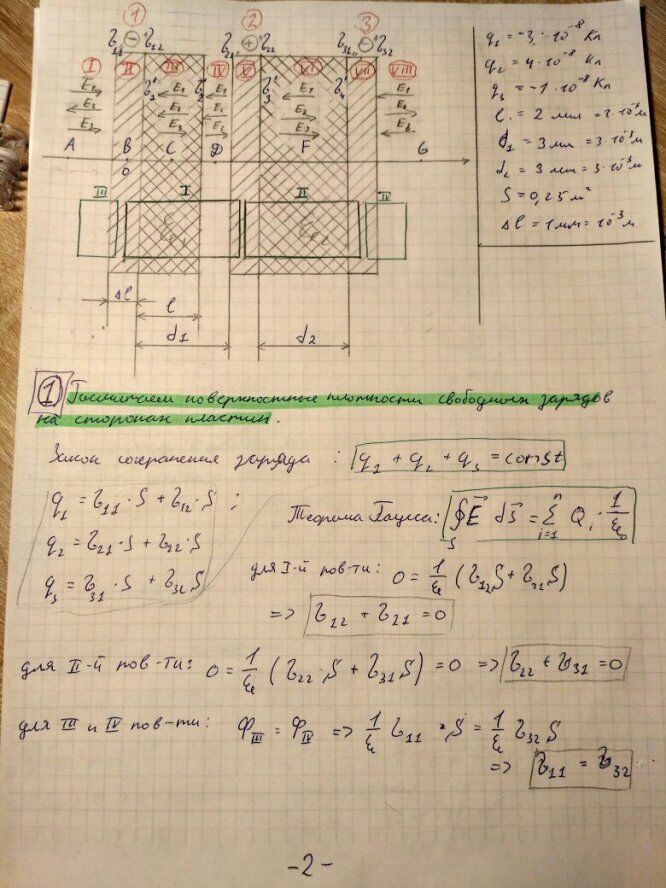 ① ② ③
τ₁₁ ⊖ τ₁₂ τ₂₁ ⊕ τ₂₂ τ₃₁ ⊖ τ₃₂
I II III IV V VI VII VIII
τ₃' τ₂' τ₃' τ₄'
E₁ E₁ E₁ E₁ E₁ E₁
E₂ E₂ E₂ E₂ E₂ E₂
E₃ E₃ E₃ E₃ E₃ E₃
A B C D F G
O
III I II IV
Δl l
d₁ d₂
q₁ = -3 · 10⁻⁸ Кл
q₂ = 4 · 10⁻⁸ Кл
q₃ = -1 · 10⁻⁸ Кл
l = 2 мм = 2·10⁻³ м
d₁ = 3 мм = 3·10⁻³ м
d₂ = 3 мм = 3·10⁻³ м
S = 0,25 м²
Δl = 1 мм = 10⁻³ м
① Посчитаем поверхностные плотности свободных зарядов
на сторонах пластин.
Закон сохранения заряда : q₁ + q₂ + q₃ = const
q₁ = τ₁₁ · S + τ₁₂ · S ;
q₂ = τ₂₁ · S + τ₂₂ · S
q₃ = τ₃₁ · S + τ₃₂ S
Теорема Гаусса: ∮E⃗ dS⃗ = Σ Qᵢ · 1/ε₀
для I-й пов-ти: 0 = 1/ε₀ (τ₁₂S + τ₂₁S)
=> τ₁₂ + τ₂₁ = 0
для II-й пов-ти: 0 = 1/ε₀ (τ₂₂·S + τ₃₁S) = 0 => τ₂₂ + τ₃₁ = 0
для III и IV пов-ти: Φ_III = Φ_IV => 1/ε₀ τ₁₁ · S = 1/ε₀ τ₃₂ S
=> τ₁₁ = τ₃₂
-2-